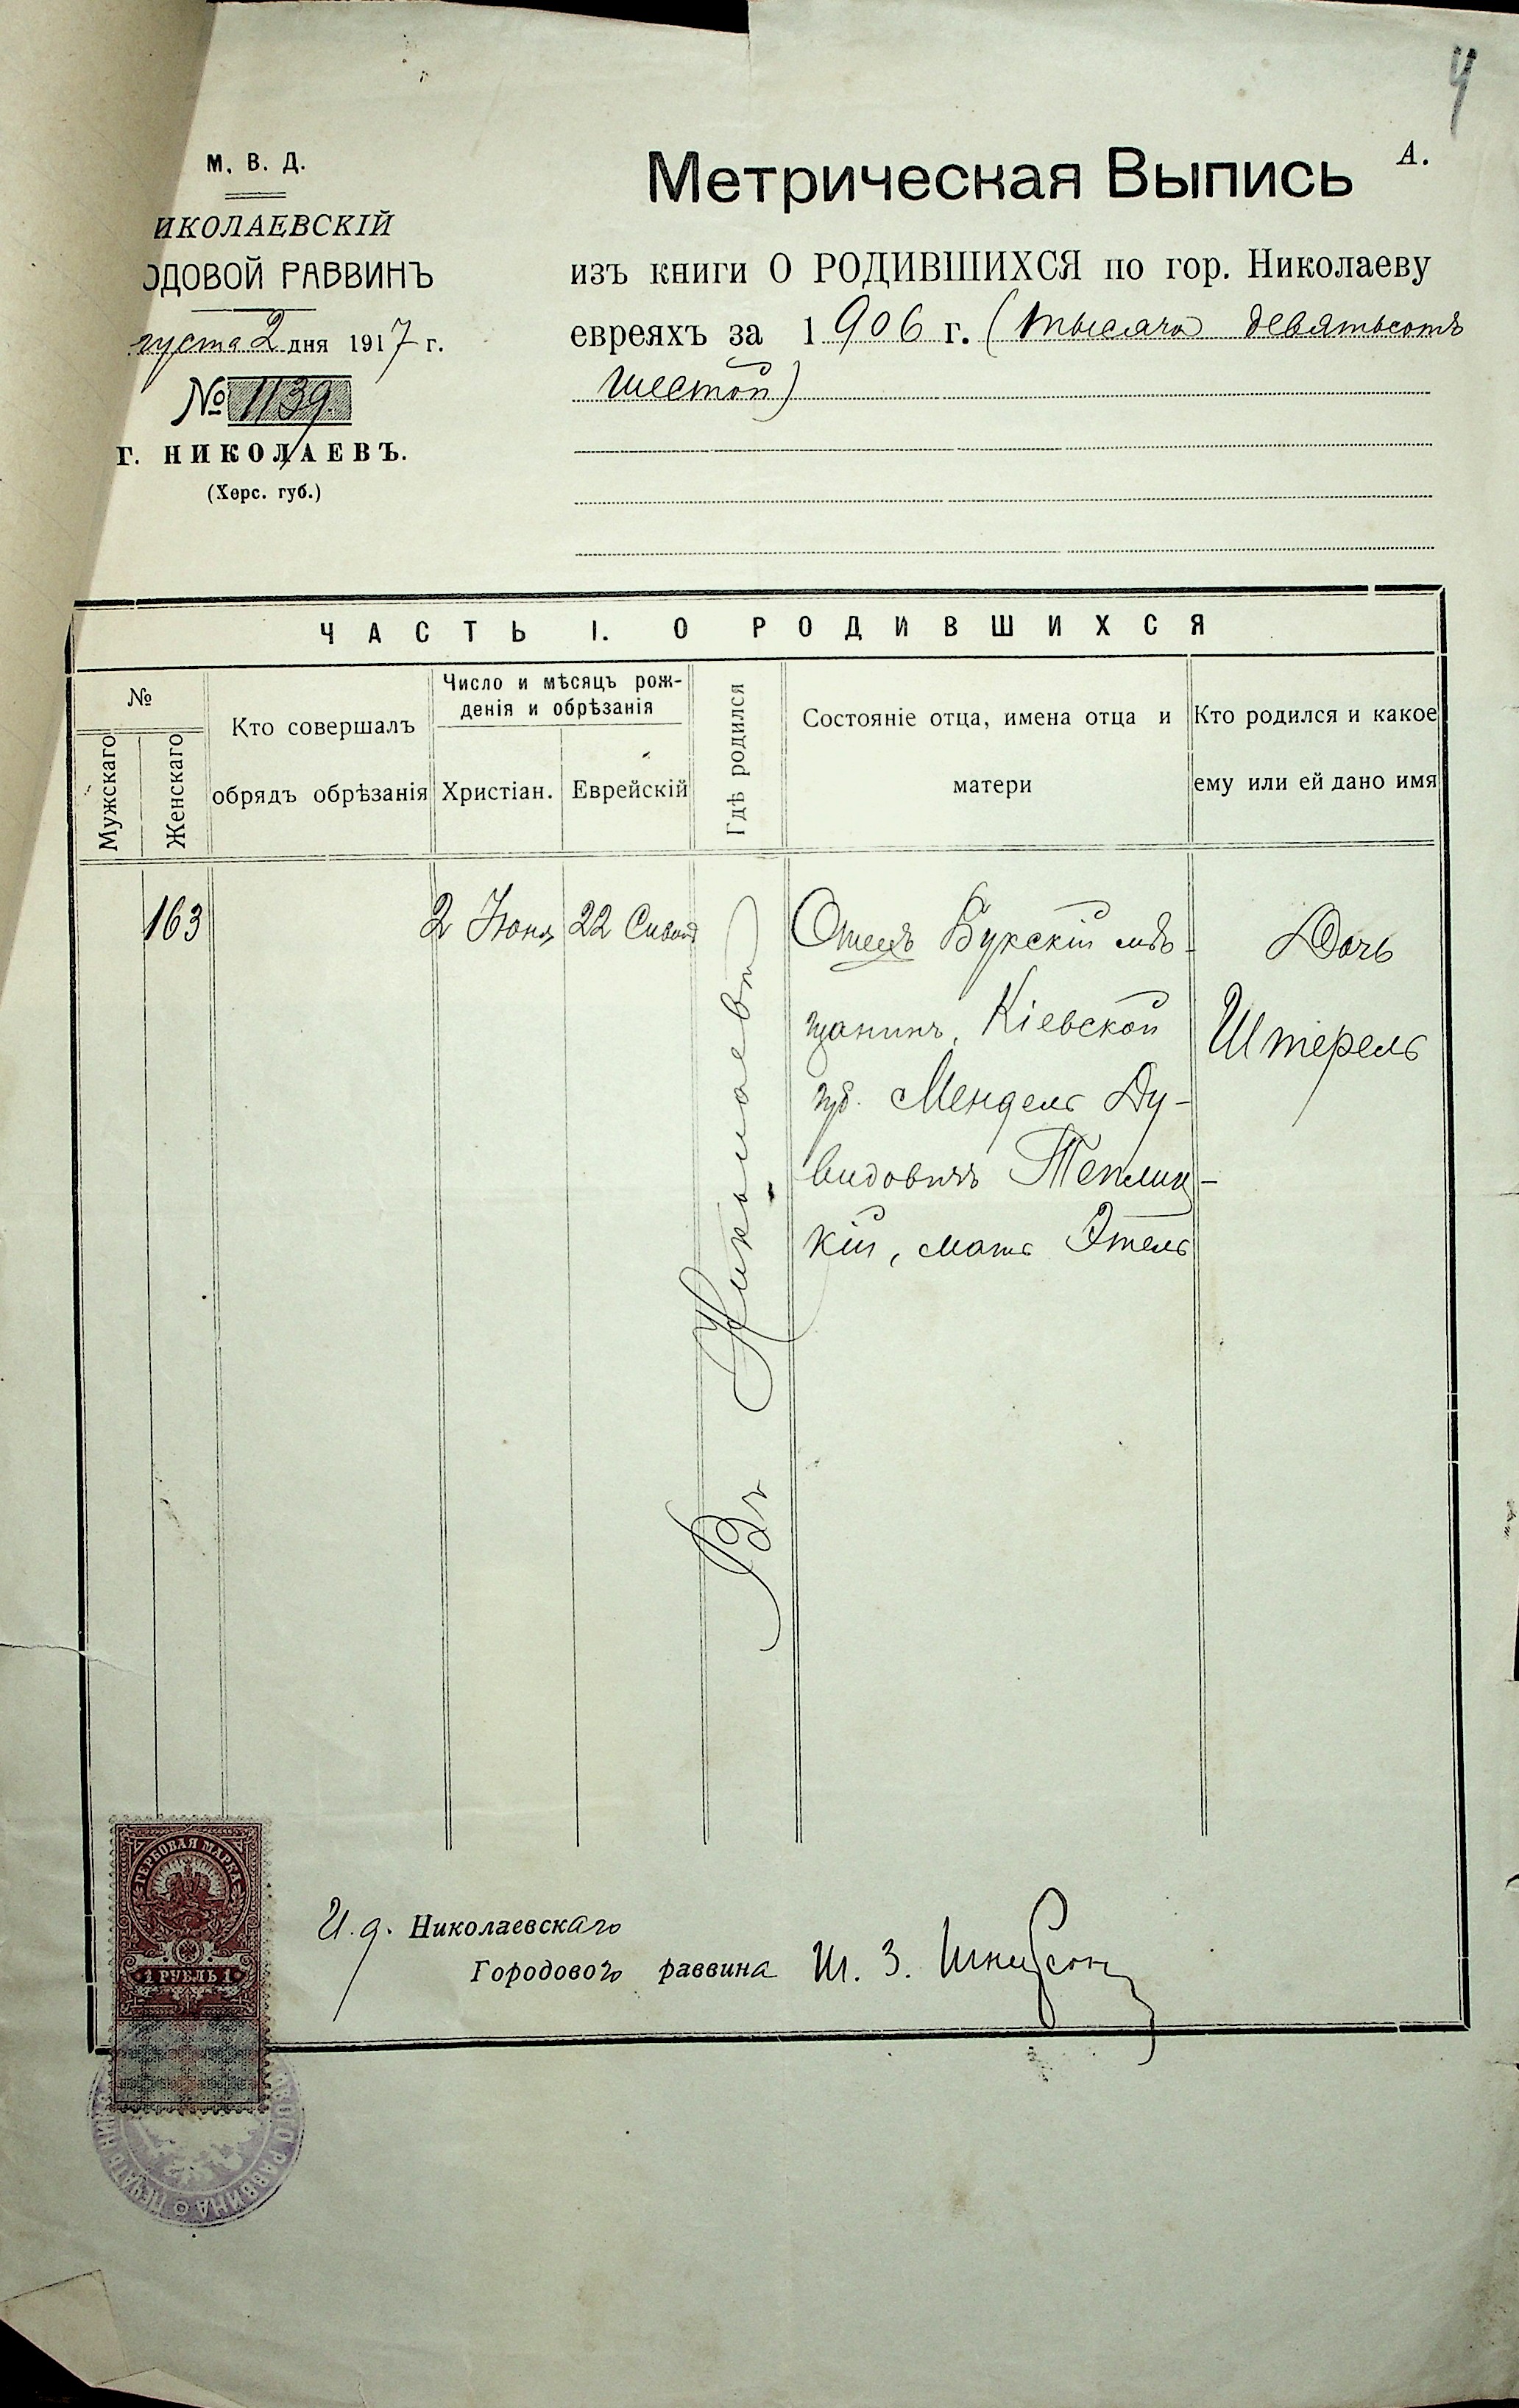 4
М. В. Д.
ИКОЛАЕВСКІЙ
ОДОВОЙ РАВВИНЪ
густа 2 дня 1917 г.
№ 1139.
Г. НИКОЛАЕВЪ.
(Херс. губ.)
А.
Метрическая Выпись
изъ книги О РОДИВШИХСЯ по гор. Николаеву
евреяхъ за 1906 г. (тысяча девятьсотъ
шестой)
ЧАСТЬ I. О РОДИВШИХСЯ
№
Мужскаго
Женскаго
Кто совершалъ
обрядъ обрѣзанія
Число и мѣсяцъ рож-
денія и обрѣзанія
Христіан.
Еврейскій
Гдѣ родился
Состояніе отца, имена отца и
матери
Кто родился и какое
ему или ей дано имя
163
2 Юня
22 Сивон
Въ Николаевѣ
Отецъ Букскій мѣ-
щанинъ, Кіевской
губ. Мендель Ду-
видовичъ Теплиц-
кій, мать Этель
Дочь
Штерель
И. д. Николаевскаго
Городового раввина Ш. З.
ГЕРБОВАЯ МАРКА
1 РУБЛЬ 1
ВОГО РАВВИНА ПЕЧАТЬ НИК